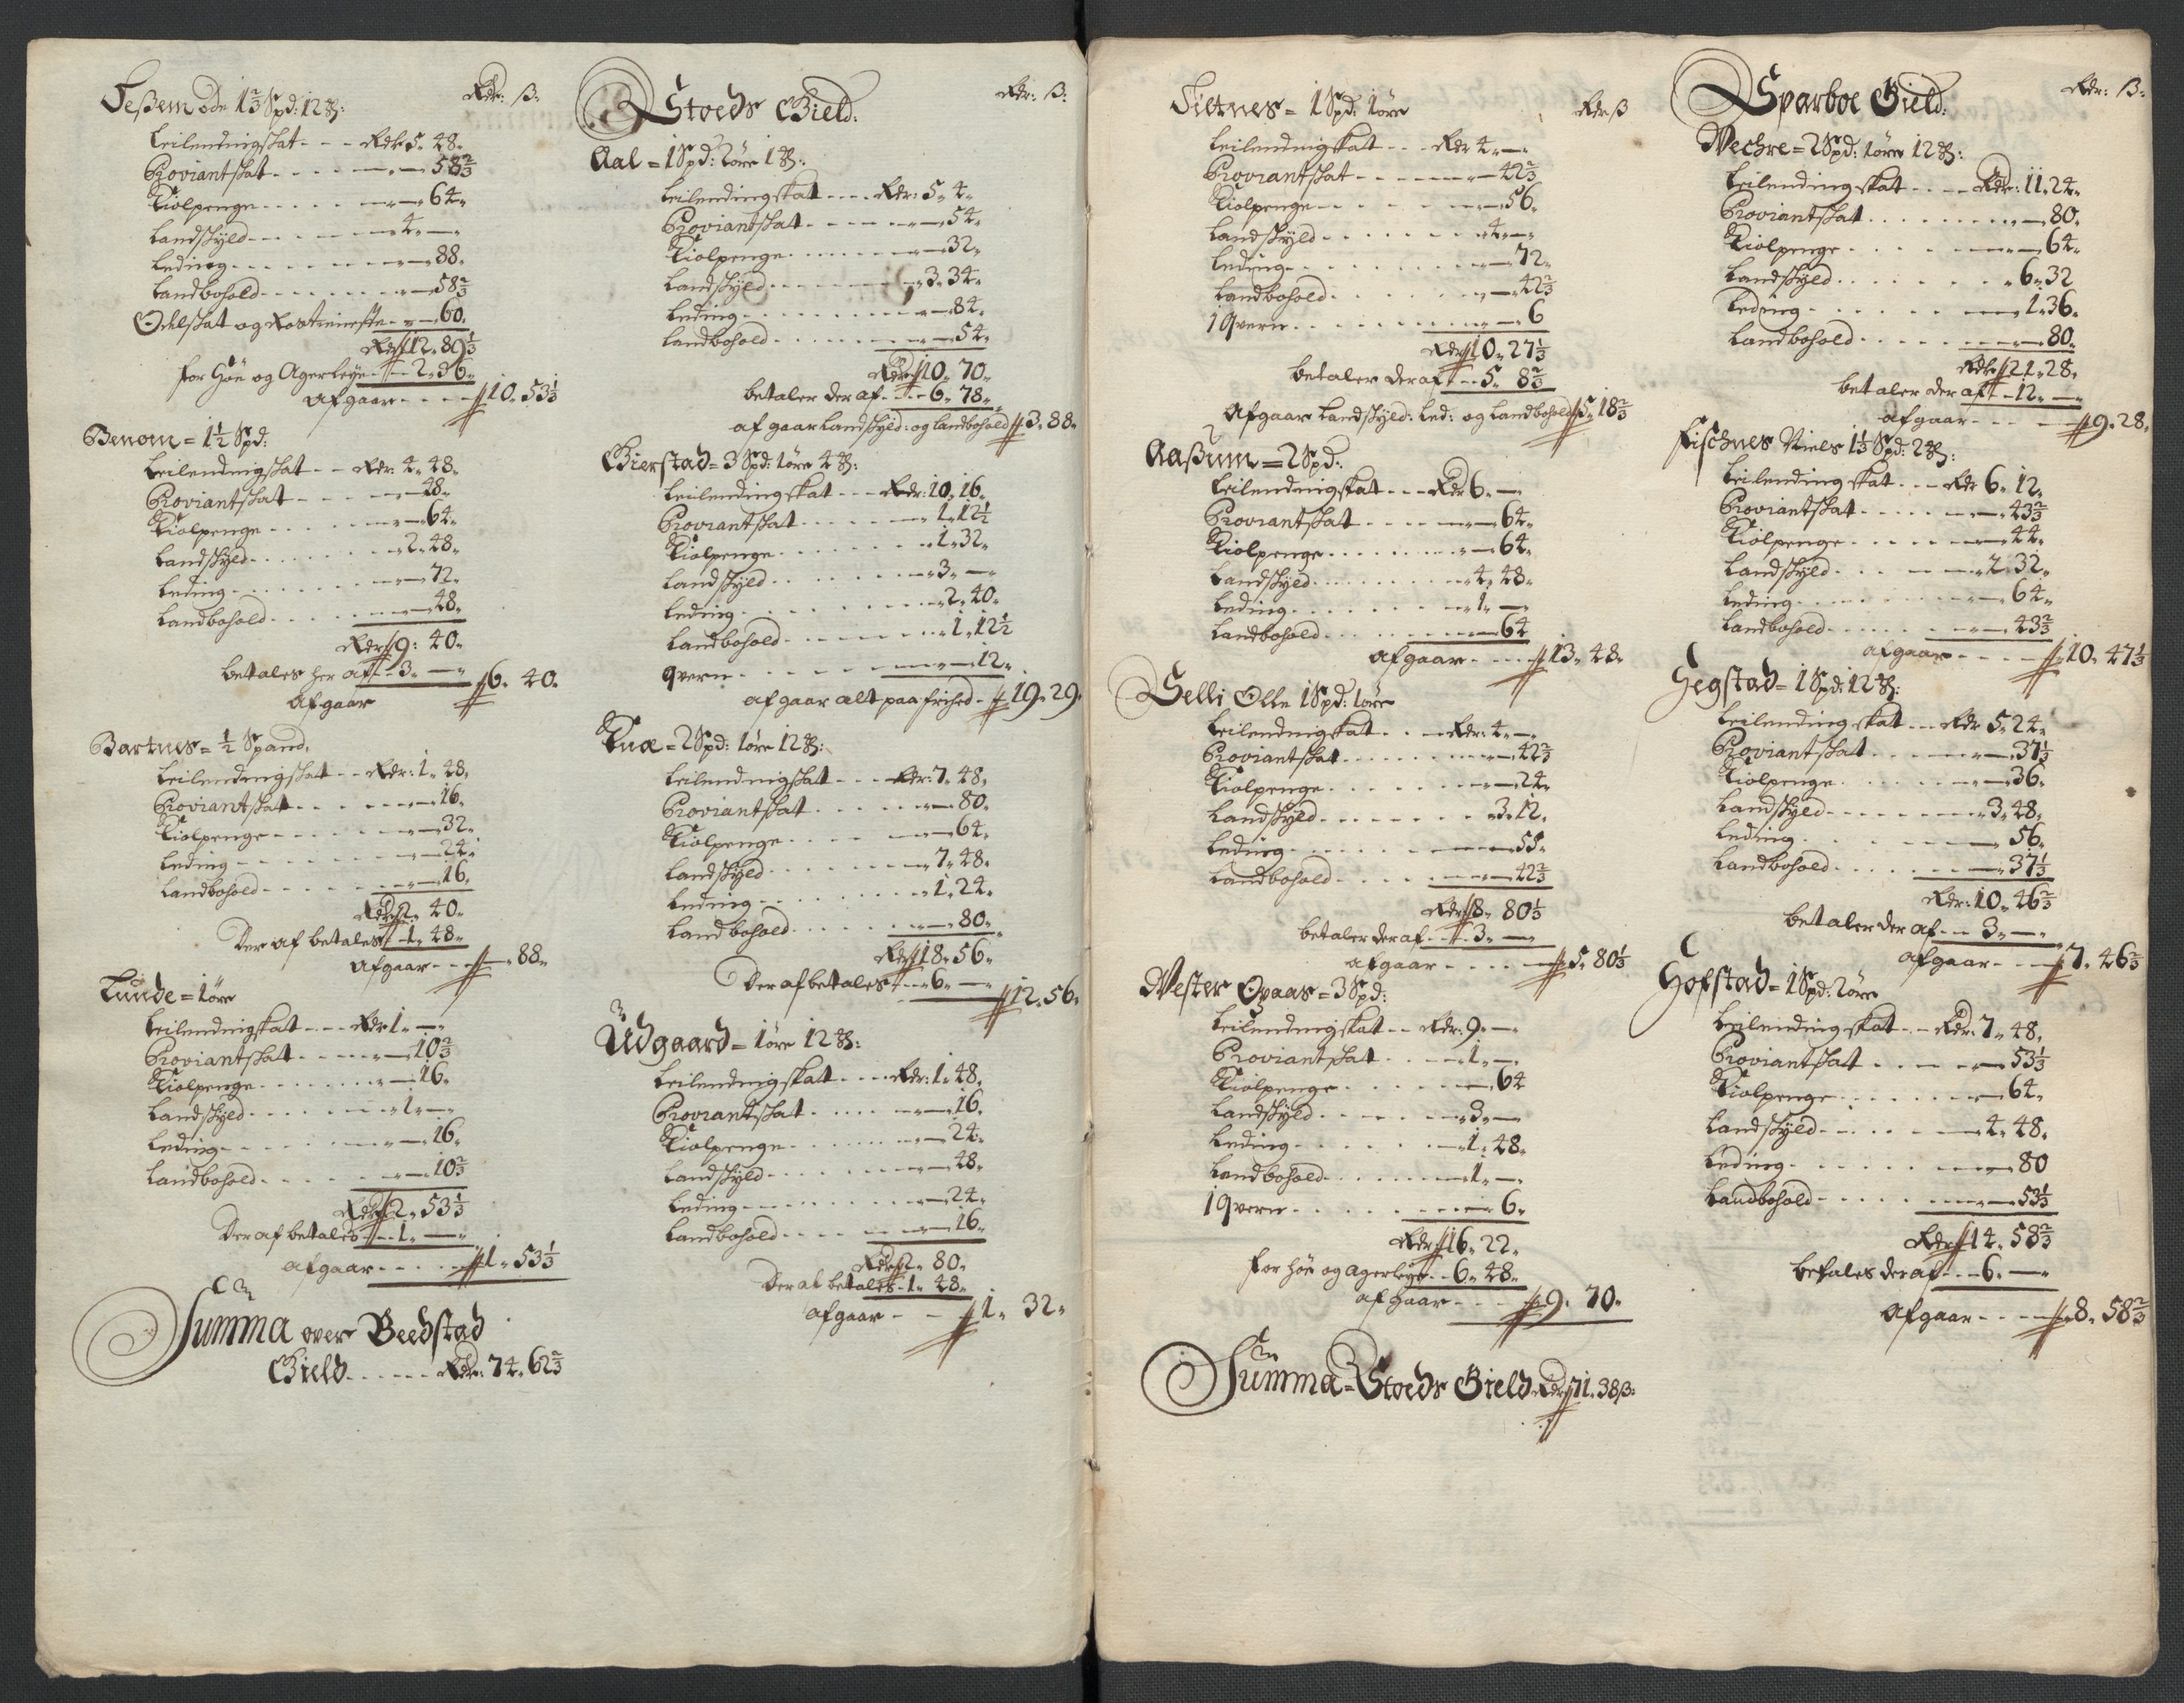 Rdr: ß:
Seßem øde 1 2/3 Spd: 12 ℔:
Leilendingskat - - - Rdr 5. 48.
Proviantskat - - - - - 58 2/3
Tiolpenge - - - - - 64.
Landskyld - - - - - 4. —
Leding - - - - - 88.
Landbohold - - - - - 58 2/3
Odelskat og Rostieneste - - 60.
Rdr 12. 89 1/3
for Høe og Agerleye - - 2. 36.
afgaar - - - - 10. 53 1/3
Benom = 1 1/2 Spd:
Leilendingskat - - Rdr: 4. 48.
Proviantskat - - - - 48.
Tiolpenge - - - - - 64.
Landskyld - - - - - 2. 48.
Leding - - - - - 72.
Landbohold - - - - - 48.
Rdr 9: 40.
betales her af - - 3. —
afgaar 6. 40.
Bartnes = 1/2 Spand.
Leilendingskat - - Rdr: 1. 48.
Proviantskat - - - - 16.
Tiolpenge - - - - - 32.
Leding - - - - - 24.
Landbohold - - - - - 16.
Rdr 2. 40.
Der af betales - 1. 48.
afgaar - - - — 88.
Lunde = 1 øre
Leilendingskat - - - Rdr 1. —
Proviantskat - - - - 10 2/3
Tiolpenge - - - - - 16.
Landskyld - - - - - 1. —
Leding - - - - - 16.
Landbohold - - - - - 10 2/3
Rdr 2. 53 1/3
Der af betales - - 1. —
afgaar - - - - 1. 53 1/3
Summa over Beedstad
Gield - - - - - Rdr: 74. 62 2/3
Rdr: ß:
Stoeds Gield:
Aal = 1 Spd: 2 øre 1 ℔:
Leilendingskat - - - Rdr: 5. 4.
Proviantskat - - - - 54.
Tiolpenge - - - - - 32.
Landskyld - - - - - 3. 34.
Leding - - - - - 84.
Landbohold - - - - - 54.
Rdr 10. 70.
betaler der af - - - 6. 78.
afgaar Landskyld: og landbohold 3. 88.
Gierstad = 3 Spd: 1 øre 4 ℔:
Leilendingskat - - - Rdr: 10. 16.
Proviantskat - - - - 1. 12 1/2
Tiolpenge - - - - - 1. 32.
Landskyld - - - - - 3. —
Leding - - - - - 2. 40.
Landbohold - - - - - 1. 12 1/2
qvern - - - - - 12.
afgaar alt paa frihed - 19. 29.
Tuæ = 2 Spd: 1 øre 12 ℔:
Leilendingskat - - - Rdr: 7. 48.
Proviantskat - - - - 80.
Tiolpenge - - - - 64.
Landskyld - - - - - 7. 48.
Leding - - - - - 1. 24.
Landbohold - - - - - 80.
Rdr 18. 56.
Der af betales - - 6. —
12. 56.
Udgaard = 1 øre 12 ℔:
Leilendingskat - - - Rdr: 1. 48.
Proviantskat - - - - 16.
Tiolpenge - - - - - 24.
Landskyld - - - - - 48.
Leding - - - - - 24.
Landbohold - - - - - 16.
Rdr 2. 80.
Der af betales - 1. 48.
afgaar - - 1. 32.
Rdr ß
Sietnes = 1 Spd: 1 øre
Leilendingskat - - - Rdr 4. —
Proviantskat - - - - 42 2/3
Tiolpenge - - - - - 56.
Landskyld - - - - - 4. —
Leding - - - - - 72.
Landbohold - - - - - 42 2/3
1 qvern - - - - - 6
Rdr 10. 27 1/3
betaler deraf - - 5. 8 2/3
Afgaar Landskyld: Led: og Landbohold 5. 18 2/3
Aaßum = 2 Spd:
Leilendingskat - - - Rdr 6. —
Proviantskat - - - - 64.
Tiolpenge - - - - - 64.
Landskyld - - - - - 4. 48.
Leding - - - - - 1. —
Landbohold - - - - - 64
afgaar - - - - 13. 48.
Selli Olle 1 Spd: 1 øre
Leilendingskat - - - Rdr: 4. —
Proviantskat - - - - 42 2/3
Tiolpenge - - - - - 24.
Landskyld - - - - - 3. 12.
Leding - - - - - 55.
Landbohold - - - - - 42 2/3
Rdr 8. 80 1/3
betaler deraf - - - 3. —
afgaar - - - - 5. 80 1/3
Vester Opaas = 3 Spd:
Leilendingskat - - Rdr: 9. —
Proviantskat - - - - 1. —
Tiolpenge - - - - - 64
Landskyld - - - - - 3. —
Leding - - - - - 1. 48.
Landbohold - - - - - 1. —
1 qvern - - - - - 6.
Rdr 16. 22.
for høe og agerleye - - 6. 48.
afgaar - - - - 9. 70.
Summa = Stoeds Gield Rdr 71. 38 ß:
Rdr: ß:
Sparboe Gield:
Vechre = 2 Spd: 1 øre 12 ℔:
Leilendingskat - - - Rdr: 11. 24.
Proviantskat - - - - 80.
Tiolpenge - - - - - 64.
Landskyld - - - - - 6. 32
Leding - - - - - 1. 36.
Landbohold - - - - - 80.
Rdr 21. 28.
betaler der af - 12. —
afgaar - - - - 9. 28.
Fischnes Niels 1 1/3 Spd: 2 ℔:
Leilendingskat - - - Rdr 6. 12.
Proviantskat - - - - 43 2/3
Tiolpenge - - - - - 44.
Landskyld - - - - - 2. 32.
Leding - - - - - 64.
Landbohold - - - - - 43 2/3
afgaar - - - - 10. 47 1/3
Hegstad = 1 Spd: 12 ℔:
Leilendingskat - - - Rdr 5. 24.
Proviantskat - - - - 37 1/3
Tiolpenge - - - - - 36.
Landskyld - - - - - 3. 48.
Leding - - - - - 56.
Landbohold - - - - - 37 1/3
Rdr: 10. 46 2/3
betaler der af - - 3. —
afgaar - - - 7. 46 2/3
Hofstad = 1 Spd: 2 øre
Leilendingskat - - Rdr: 7. 48.
Proviantskat - - - - 53 1/3
Tiolpenge - - - - - 64.
Landskyld - - - - - 4. 48.
Leding - - - - - 80
Landbohold - - - - - 53 1/3
Rdr 14. 58 2/3
betales deraf - - - 6. —
afgaar - - - - 8. 58 2/3